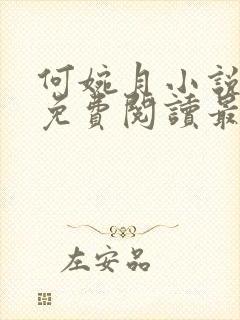 何婉月小說
免費閱讀最
左安品